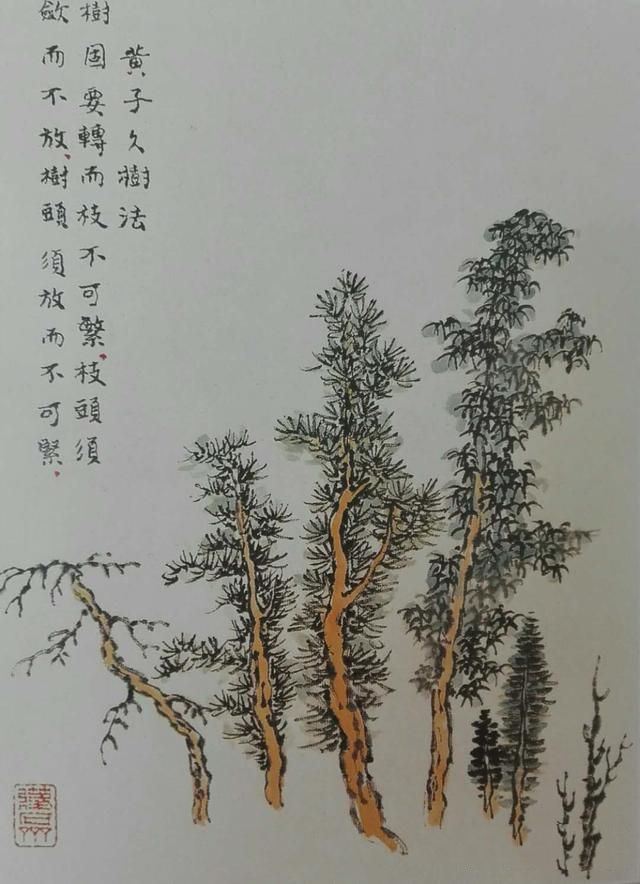 黄子久樹法
樹固要轉而枝不可繁枝頭須
斂而不放樹頭須放而不可緊